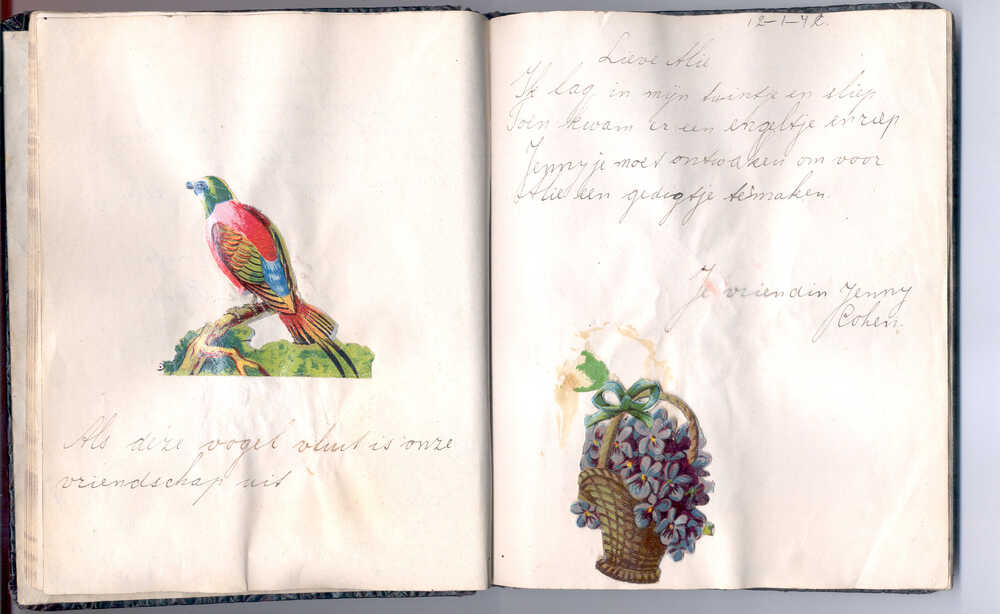 Als deze vogel vluit is onze
vriendschap uit
12-1-42.
Lieve Alie
Ik lag in mijn tuintje en sliep
Toen kwam er een engeltje en riep
Jenny je moet ontwaken om voor
Alie een gedigtje te maken.
Je vriendin Jenny
Cohen.